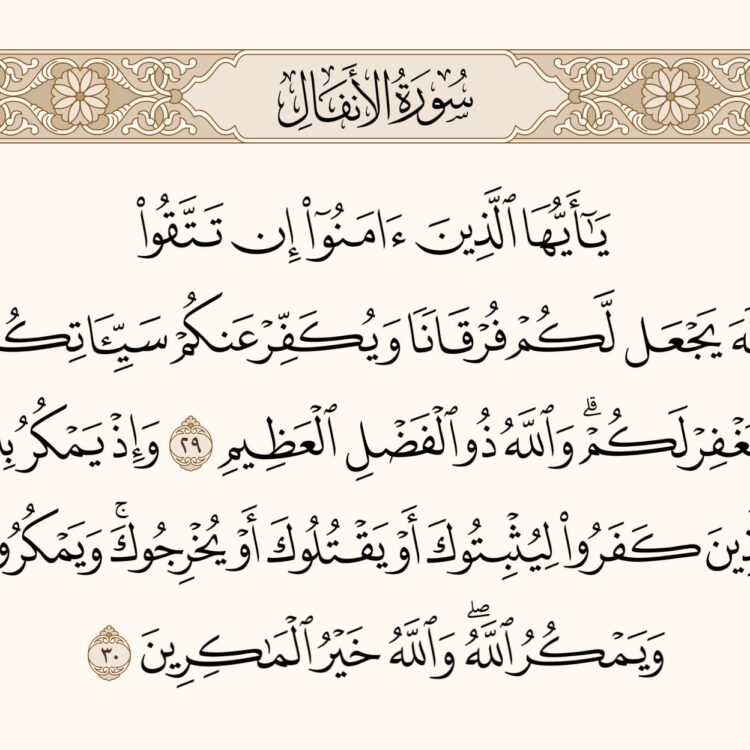 سُورَةُ الأَنفَالِ
يَـٰٓأَيُّهَا ٱلَّذِينَ ءَامَنُوٓا۟ إِن تَتَّقُوا۟
يَجْعَل لَّكُمْ فُرْقَانًا وَيُكَفِّرْ عَنكُمْ
لَكُمْ ۗ وَٱللَّهُ ذُو ٱلْفَضْلِ ٱلْعَظِيمِ ٢٩ وَإِذْ يَمْكُرُ
كَفَرُوا۟ لِيُثْبِتُوكَ أَوْ يَقْتُلُوكَ أَوْ يُخْرِجُوكَ ۚ
وَيَمْكُرُ ٱللَّهُ ۖ وَٱللَّهُ خَيْرُ ٱلْمَـٰكِرِينَ ٣٠